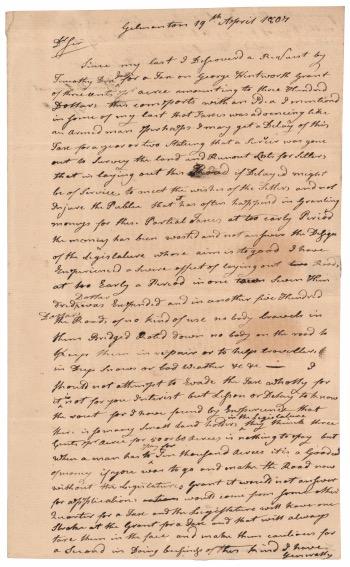 Gilmanton 19th April 1804
Dr Sir
Since my last I Discoverd a Resart by
Timothy for a Tax on George Wentworth Grant
of three Cents acre amounting to three Hundred
Dollars this comports with an Idea I mentioned
in some of my last that Taxes was advancing like
an Armed man Perhaps I may get a Delay of this
Tax for a year or two Stating that a Survier was gone
out to Survey the land and Remout Lots for Settlers
that in laying out the Road if Delayed might
be of Service to meet the wishes of the Settlers and not
Injure the Publick that has often happened in Granting
moneys for these Partial Taxes at too early Period
the money has been wasted and not answer the Design
of the Legislature whose aim is to good I have
Experienced a Severe effect of laying out Roads
at too Early a Period in one Seven Hun
dred was Expended and in another five Hundred
the Roads of no kind of use no body travels in
them Bridges Roted down no body on the road to
Keep them in repair or to help travellers
in Deep Snows or bad Weather &c &c — I
Should not attempt to Evade the Tax wholly for
it is not for your Interest but Lesson or Delay to know
the rout for I have found by Experience that
there is so many Small Land holders in the Legislature they think three
Cents pr Acre for 50 or 60 Acres is nothing to pay but
when a man has Ten thousand Acres it is a Good
of money if you was to go and make the Road now
without the Legislature Grant it would not answer
for application would come from some other
Quarter for a Tax and the Legislature will have one
Stroke at the Grant for a Tax and that will always
Stare them in the face and make them cautious for
a Second in Doing business of this kind I have
Generally